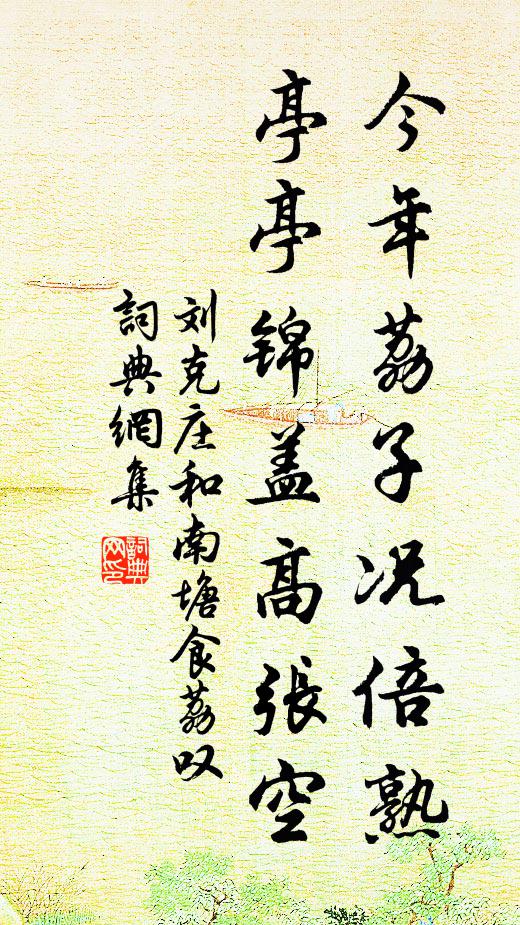 今年荔子况倍熟
亭亭锦盖高張空
刘克庄和南塘食荔叹
詞典網集
詞典网印